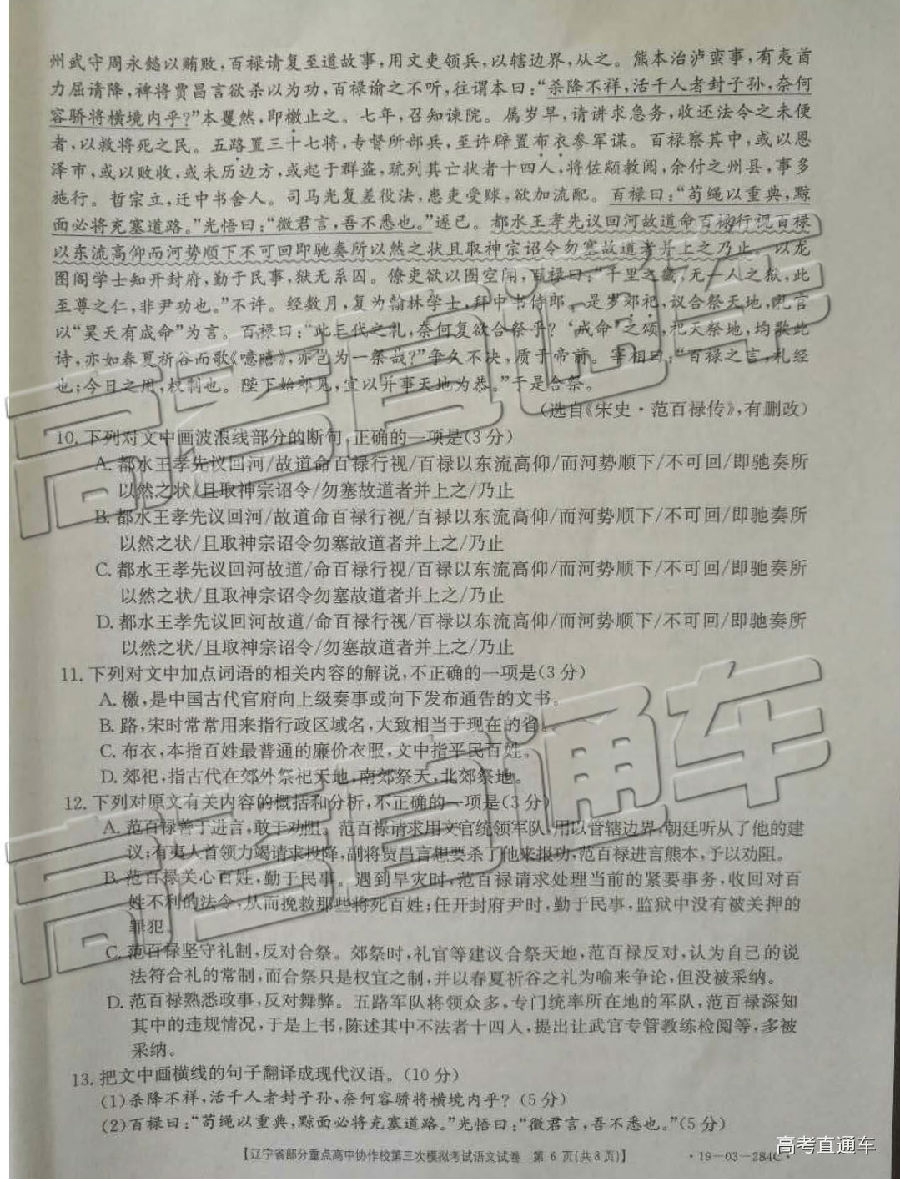 州武守周永懿以贿败，百禄请复至道故事，用文吏领兵，以辖边界，从之。熊本治泸蛮事，有夷酋
力屈请降，裨将贾昌言欲杀以为功，百禄谕之不听，往谓本曰：“杀降不祥，活千人者封子孙，奈何
容骄将横境内乎？”本矍然，即檄止之。七年，召知谏院。属岁旱，请讲求急务，收还法令之未便
者，以救将死之民。五路置三十七将，专督所部兵，至许辟置布衣参军谋。百禄察其中，或以恩
泽市，或以败收，或未历边方，或起于群盗，疏列其亡状者十四人，将佐颛教阅，余付之州县，事多
施行。哲宗立，迁中书舍人。司马光复差役法，患吏受赇，欲加流配。百禄曰：“苟绳以重典，黥
面必将充塞道路。”光悟曰：“微君言，吾不悉也。”遂已。都水王孝先议回河故道命百禄行视百禄
以东流高仰而河势顺下不可回即驰奏所以然之状且取神宗诏令勿塞故道者并上之乃止。以龙
图阁学士知开封府，勤于民事，狱无系囚。僚吏欲以圄空闻，百禄曰：“千里之畿，无一人之狱，此
至尊之仁，非尹功也。”不许。经数月，复为翰林学士，拜中书侍郎。是岁郊祀，议合祭天地，礼官
以“昊天有成命”为言。百禄曰：“此三代之礼，奈何复欲合祭乎？‘成命’之颂，祀天祭地，均歌此
诗，亦如春夏祈谷而歌《噫嘻》，亦岂为一祭哉？”争久不决，质于帝前。宰相曰：“百禄之言，礼经
也；今日之用，权制也。陛下始郊见，宜以并事天地为恭。”于是合祭。
（选自《宋史·范百禄传》，有删改）
10. 下列对文中画波浪线部分的断句，正确的一项是（3 分）
A. 都水王孝先议回河/故道命百禄行视/百禄以东流高仰/而河势顺下/不可回/即驰奏所
以然之状/且取神宗诏令/勿塞故道者并上之/乃止
B. 都水王孝先议回河/故道命百禄行视/百禄以东流高仰/而河势顺下/不可回/即驰奏所
以然之状/且取神宗诏令勿塞故道者并上之/乃止
C. 都水王孝先议回河故道/命百禄行视/百禄以东流高仰/而河势顺下/不可回/即驰奏所
以然之状/且取神宗诏令勿塞故道者并上之/乃止
D. 都水王孝先议回河故道/命百禄行视/百禄以东流高仰/而河势顺下/不可回/即驰奏所
以然之状/且取神宗诏令/勿塞故道者并上之/乃止
11. 下列对文中加点词语的相关内容的解说，不正确的一项是（3 分）
A. 檄，是中国古代官府向上级奏事或向下发布通告的文书。
B. 路，宋时常常用来指行政区域名，大致相当于现在的省。
C. 布衣，本指百姓最普通的廉价衣服，文中指平民百姓。
D. 郊祀，指古代在郊外祭祀天地，南郊祭天，北郊祭地。
12. 下列对原文有关内容的概括和分析，不正确的一项是（3 分）
A. 范百禄善于进言，敢于劝阻。范百禄请求用文官统领军队，用以管辖边界，朝廷听从了他的建
议；有夷人首领力竭请求投降，副将贾昌言想要杀了他来报功，范百禄进言熊本，予以劝阻。
B. 范百禄关心百姓，勤于民事。遇到旱灾时，范百禄请求处理当前的紧要事务，收回对百
姓不利的法令，从而挽救那些将死百姓；任开封府尹时，勤于民事，监狱中没有被关押的
罪犯。
C. 范百禄坚守礼制，反对合祭。郊祭时，礼官等建议合祭天地，范百禄反对，认为自己的说
法符合礼的常制，而合祭只是权宜之制，并以春夏祈谷之礼为喻来争论，但没被采纳。
D. 范百禄熟悉政事，反对舞弊。五路军队将领众多，专门统率所在地的军队，范百禄深知
其中的违规情况，于是上书，陈述其中不法者十四人，提出让武官专管教练检阅等，多被
采纳。
13. 把文中画横线的句子翻译成现代汉语。（10 分）
（1）杀降不祥，活千人者封子孙，奈何容骄将横境内乎？（5 分）
（2）百禄曰：“苟绳以重典，黥面必将充塞道路。”光悟曰：“微君言，吾不悉也。”（5 分）
【辽宁省部分重点高中协作校第三次模拟考试语文试卷 第 6 页（共 8 页）】 ·19－03－284C·
高考直通车
高考直通车
高考直通车